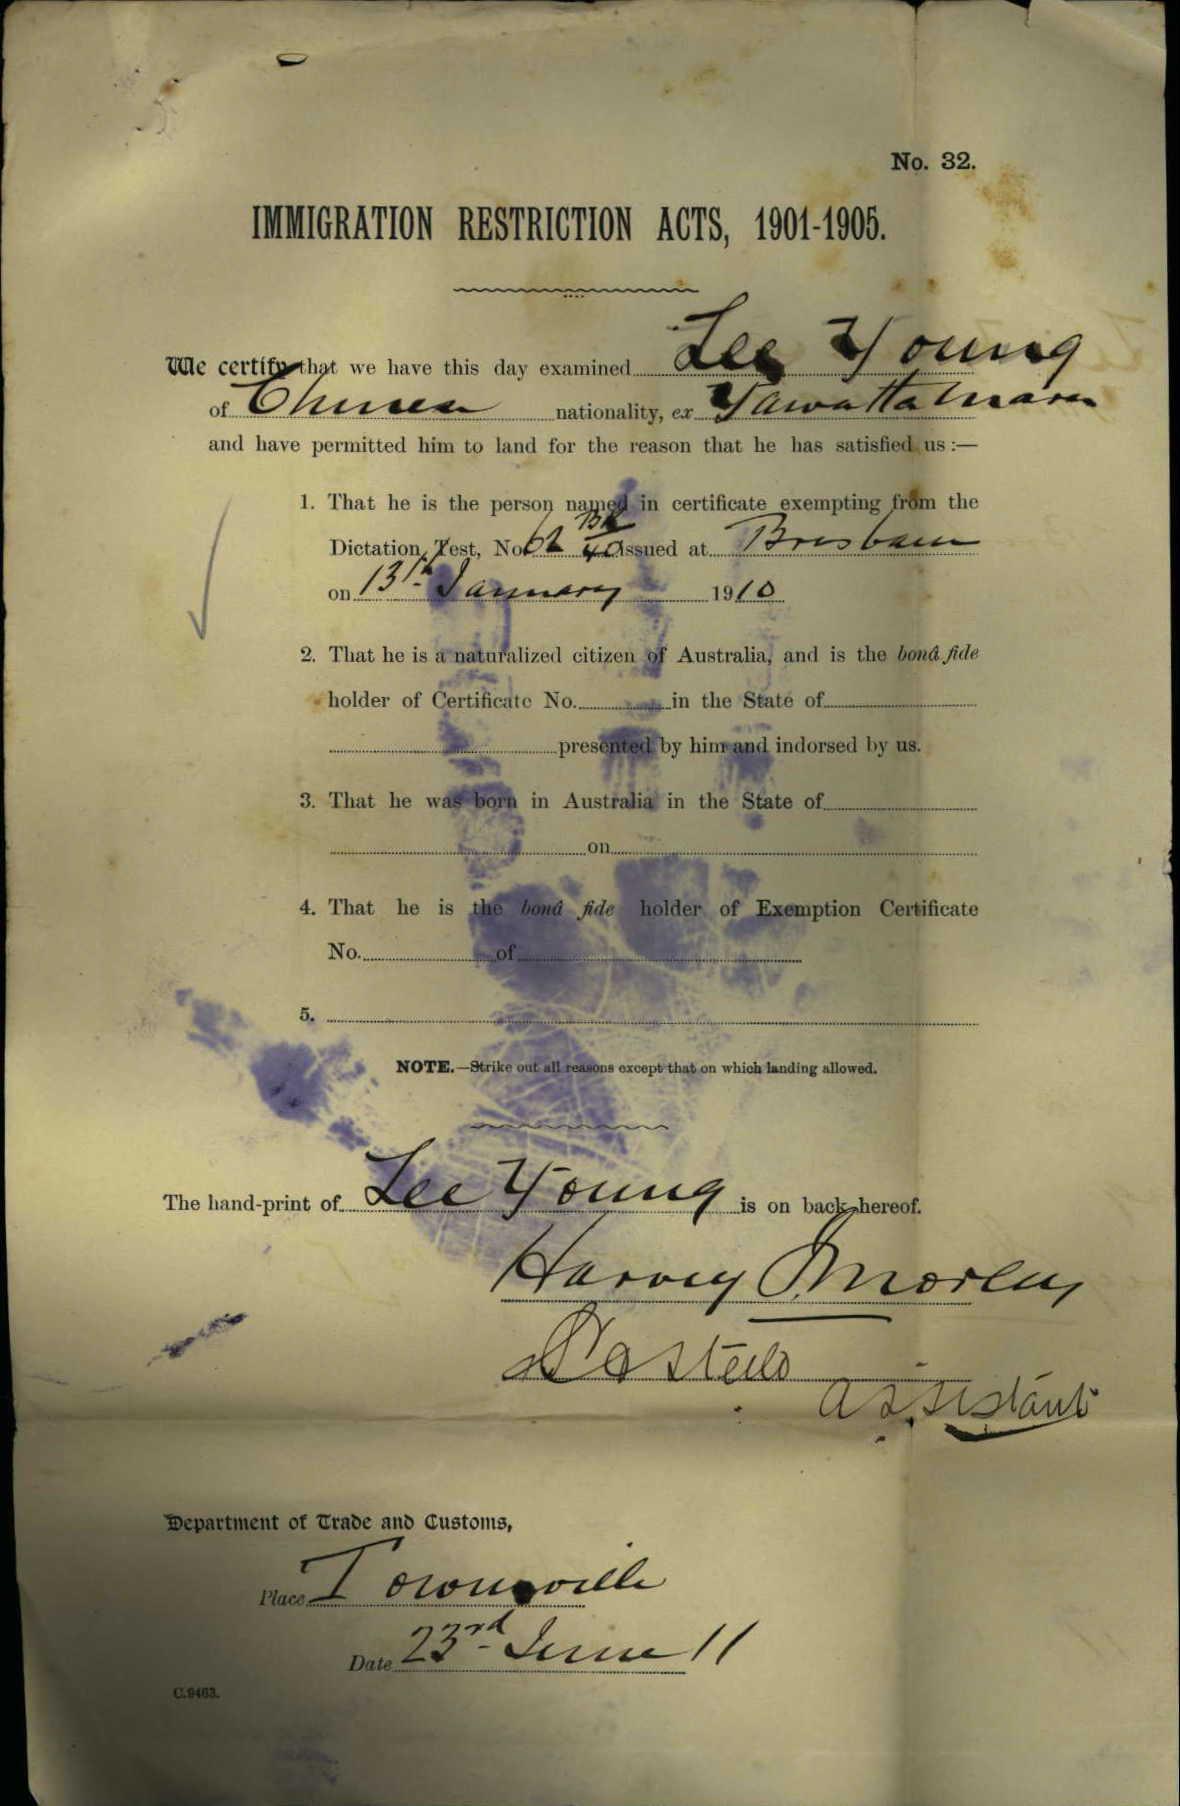 No. 32.
IMMIGRATION RESTRICTION ACTS, 1901-1905.
We certify that we have this day examined Lee Young
of Chinese nationality, ex Tawatta Maru
and have permitted him to land for the reason that he has satisfied us :—
1. That he is the person named in certificate exempting from the
Dictation Test, No. issued at Brisbane
on 13th January 1910
2. That he is a naturalized citizen of Australia, and is the bonâ fide
holder of Certificate No. in the State of
presented by him and indorsed by us.
3. That he was born in Australia in the State of
on
4. That he is the bonâ fide holder of Exemption Certificate
No. of
5.
NOTE.—Strike out all reasons except that on which landing allowed.
The hand-print of Lee Young is on back hereof.
Harvey J. Morley
Costello
assistant
Department of Trade and Customs,
Place Townsville
Date 23rd June 11
C.9463.